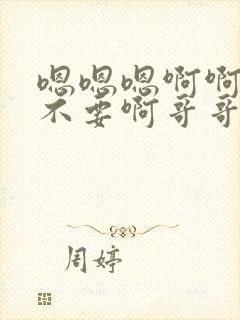 嗯嗯嗯啊啊
不要啊哥哥
周婷